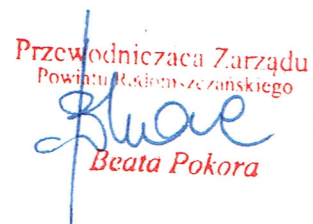 Przewodnicząca Zarządu
Powiatu Radomszczańskiego
Beata Pokora